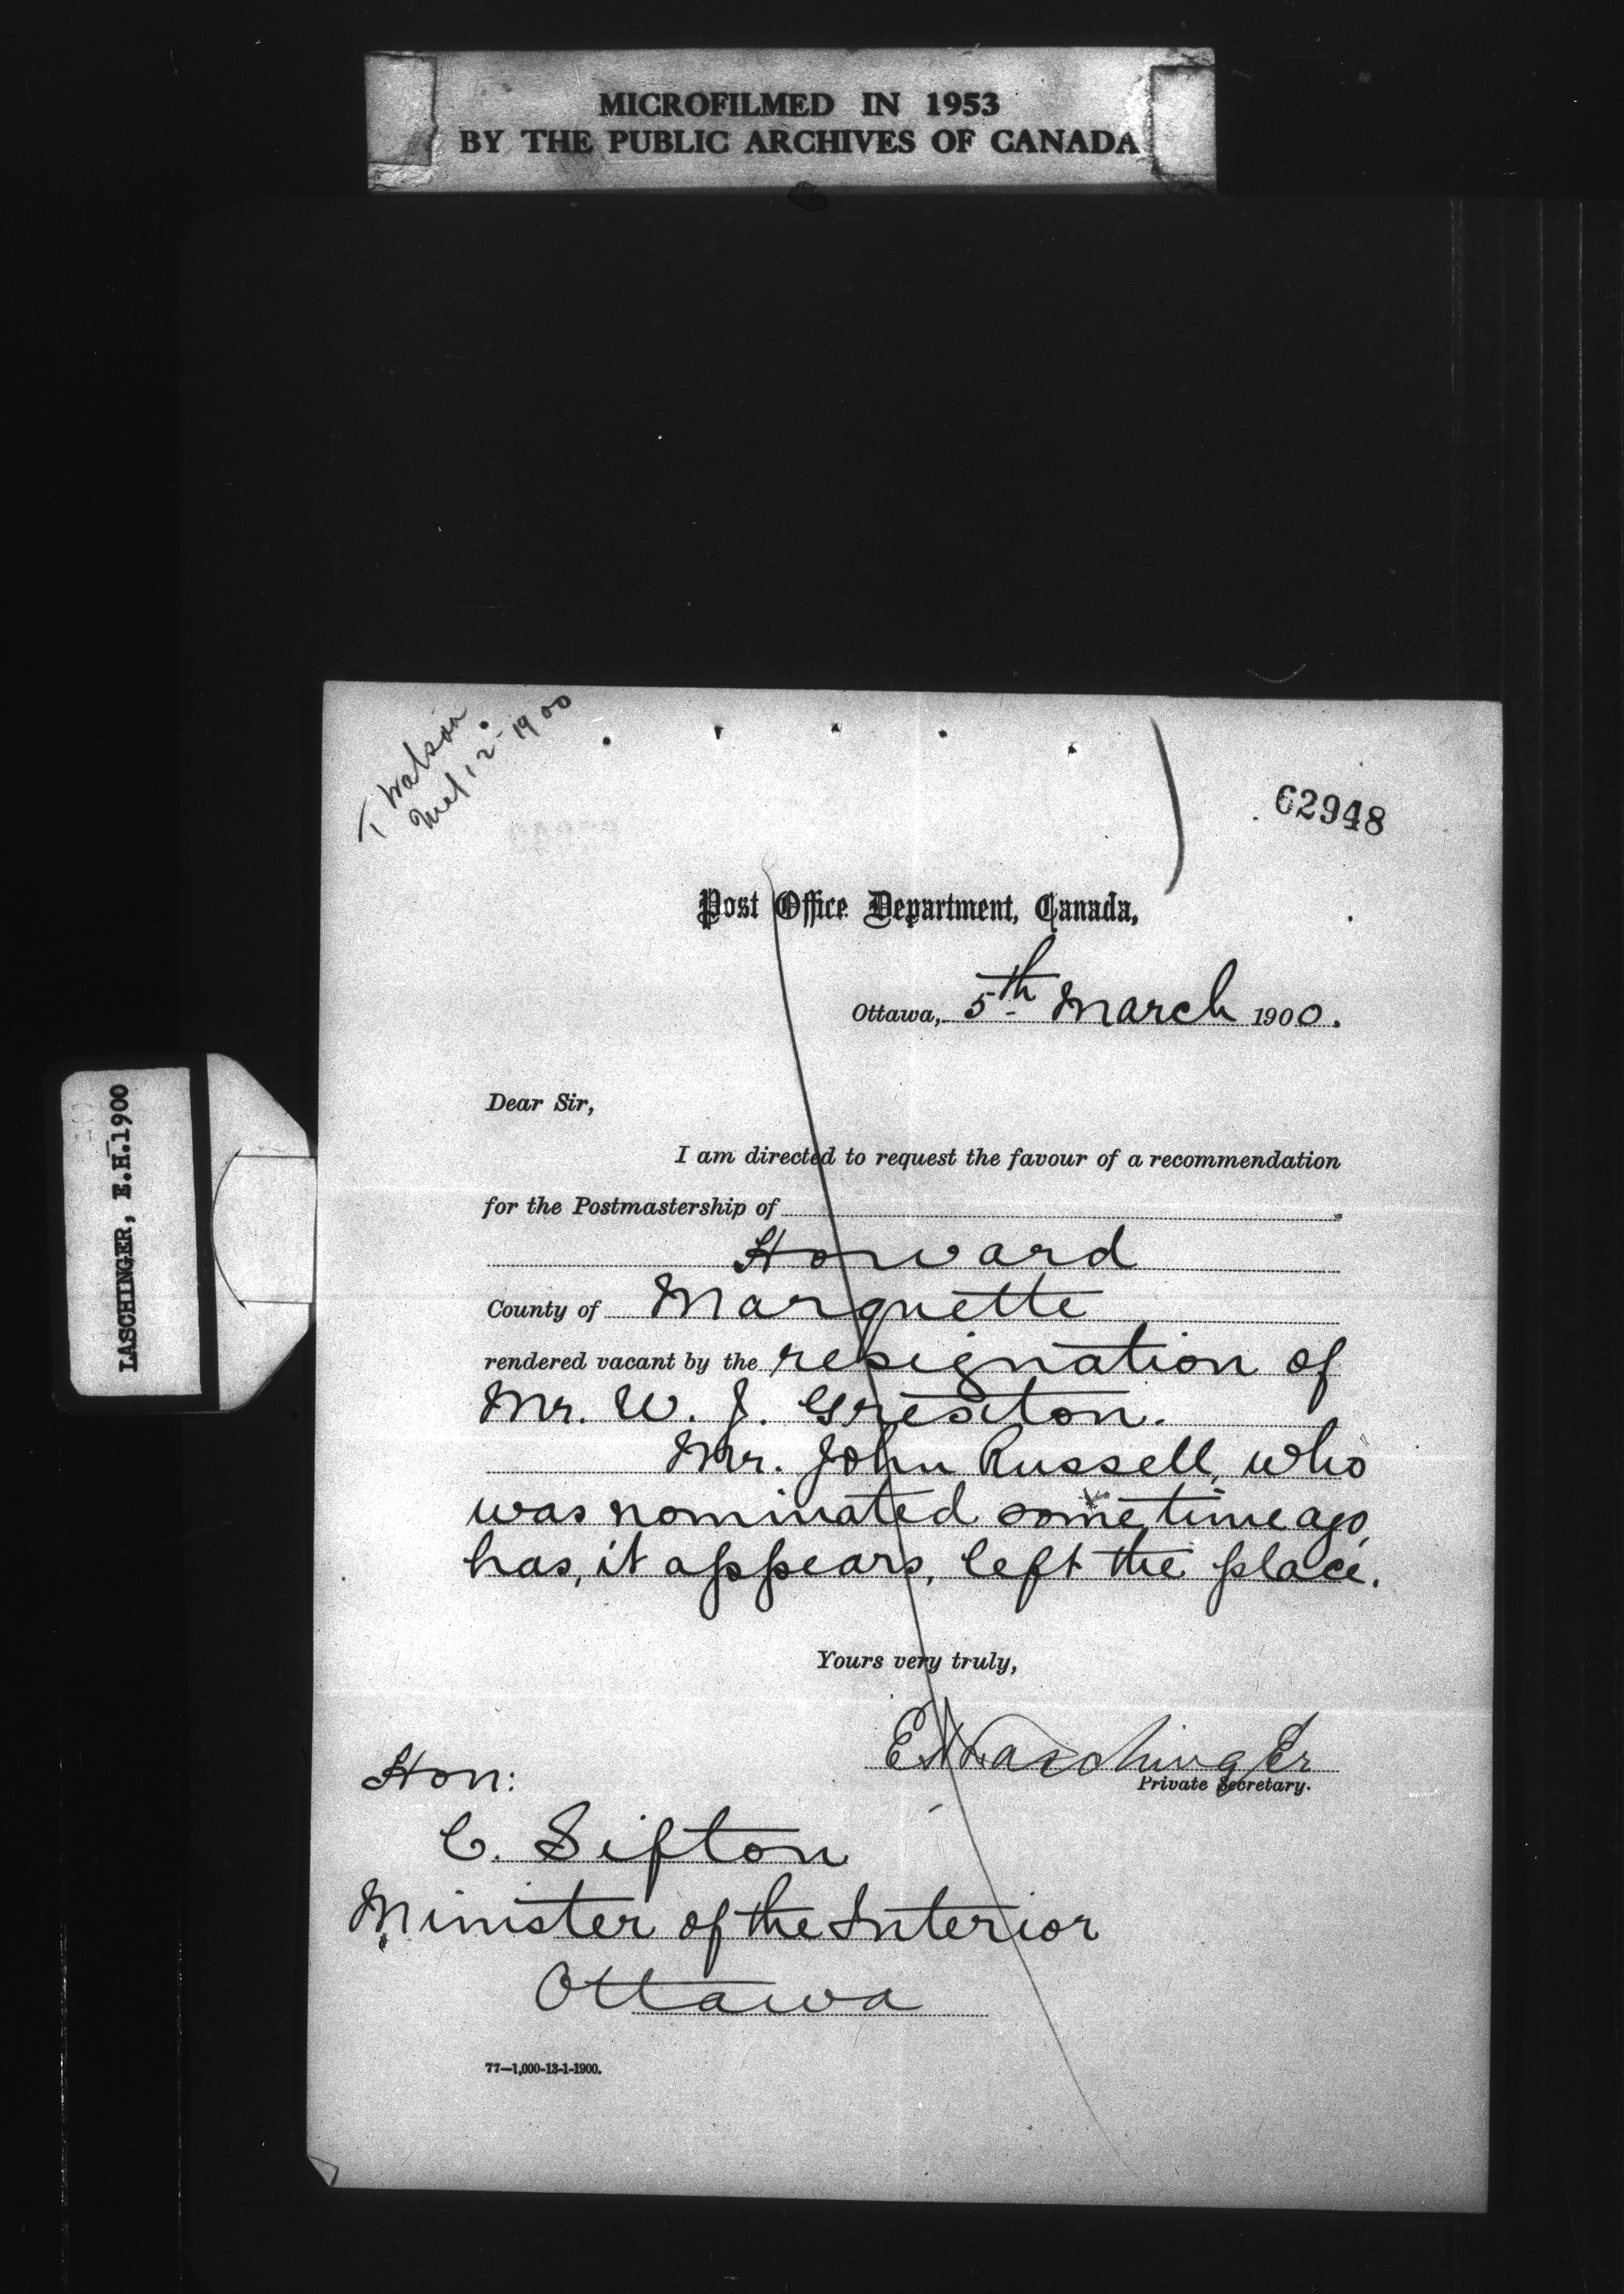 MICROFILMED IN 1953
BY THE PUBLIC ARCHIVES OF CANADA
T Watson
Mch 12-1900
62948
Post Office Department, Canada,
Ottawa, 5th March 1900.
LASCHINGER, E.H. 1900
Dear Sir,
I am directed to request the favour of a recommendation
for the Postmastership of
Howard
County of Marquette
rendered vacant by the resignation of
Mr. W. J.
Mr. John Russell, who
was nominated some time ago,
has, it appears, left the place.
Yours very truly,
E H Laschinger
Private Secretary.
Hon:
C. Sifton
Minister of the Interior
Ottawa
77—1,000-13-1-1900.